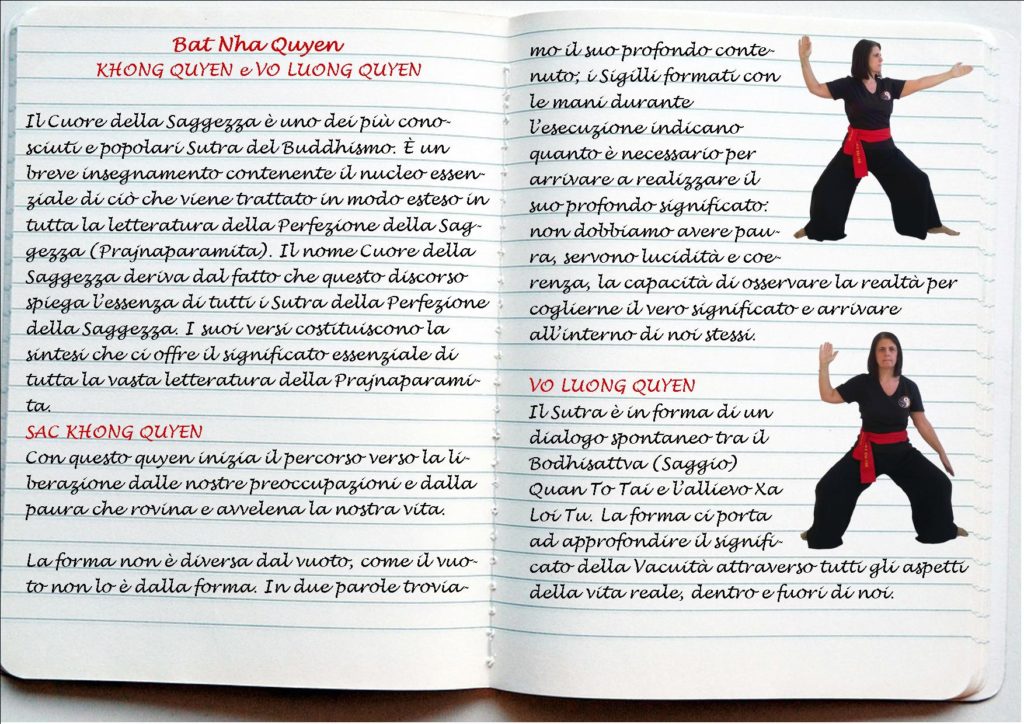 Bat Nha Quyen
KHONG QUYEN e VO LUONG QUYEN
Il Cuore della Saggezza è uno dei più cono-
sciuti e popolari Sutra del Buddhismo. È un
breve insegnamento contenente il nucleo essen-
ziale di ciò che viene trattato in modo esteso in
tutta la letteratura della Perfezione della Sag-
gezza (Prajnaparamita). Il nome Cuore della
Saggezza deriva dal fatto che questo discorso
spiega l'essenza di tutti i Sutra della Perfezione
della Saggezza. I suoi versi costituiscono la
sintesi che ci offre il significato essenziale di
tutta la vasta letteratura della Prajnaparami-
ta.
SAC KHONG QUYEN
Con questo quyen inizia il percorso verso la li-
berazione dalle nostre preoccupazioni e dalla
paura che rovina e avvelena la nostra vita.
La forma non è diversa dal vuoto, come il vuo-
to non lo è dalla forma. In due parole trovia-
mo il suo profondo conte-
nuto; i Sigilli formati con
le mani durante
l'esecuzione indicano
quanto è necessario per
arrivare a realizzare il
suo profondo significato:
non dobbiamo avere pau-
ra, servono lucidità e coe-
renza, la capacità di osservare la realtà per
coglierne il vero significato e arrivare
all'interno di noi stessi.
VO LUONG QUYEN
Il Sutra è in forma di un
dialogo spontaneo tra il
Bodhisattva (Saggio)
Quan To Tai e l'allievo Xa
Loi Tu. La forma ci porta
ad approfondire il signifi-
cato della Vacuità attraverso tutti gli aspetti
della vita reale, dentro e fuori di noi.